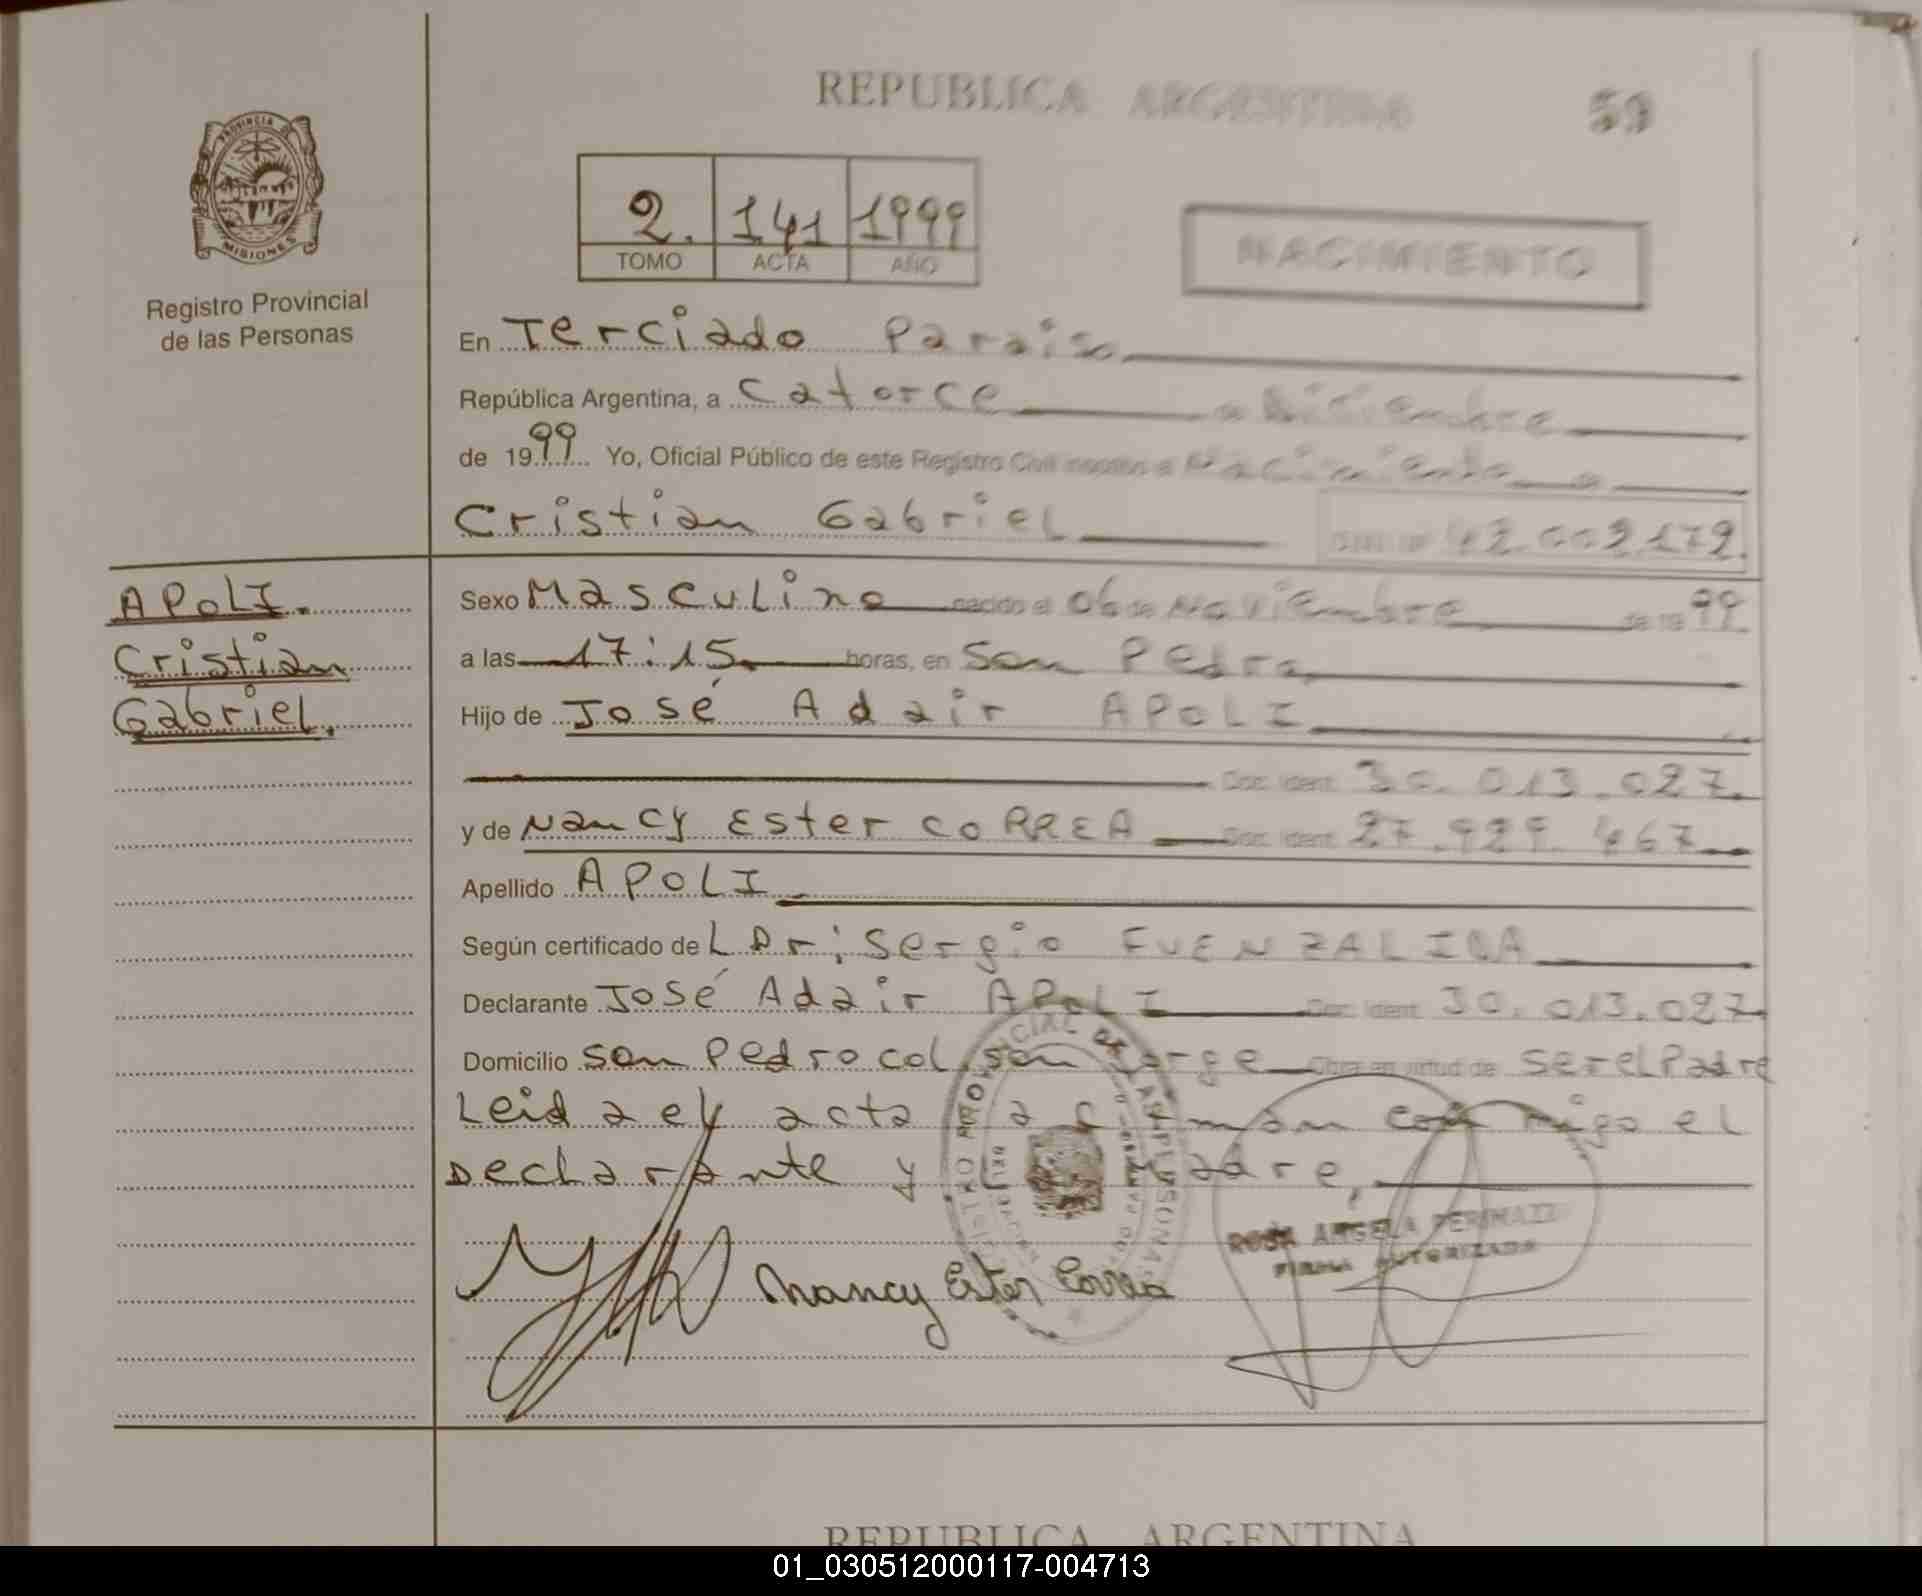 REPUBLICA ARGENTINA
59
PROVINCIA DE
MISIONES
Registro Provincial
de las Personas
2. 141 1999
TOMO ACTA AÑO
NACIMIENTO
En Terciado Paraiso
República Argentina, a Catorce de Diciembre
de 1999 Yo, Oficial Público de este Registro Civil inscribo el Nacimiento de
Cristian Gabriel DNI Nº 42.002.172.
APOLI.
Cristian
Gabriel.
Sexo Masculino nacido el 06 de Noviembre de 1999
a las 17:15. horas, en San Pedro,
Hijo de José Adair APOLI
Doc. Ident. 30.013.027.
y de Nancy Ester CORREA Doc. Ident. 27.929.467
Apellido APOLI
Según certificado de L Dr; Sergio FUENZALIDA
Declarante José Adair APOLI Doc. Ident. 30.013.027
Domicilio San Pedro Col. San Jorge Obra en virtud de ser el Padre
Leida el acta la firman conmigo el
Declarante y Madre,
ROSA ANGELA
FIRMA AUTORIZADA
Nancy Ester Correa
REPUBLICA ARGENTINA
01_030512000117-004713